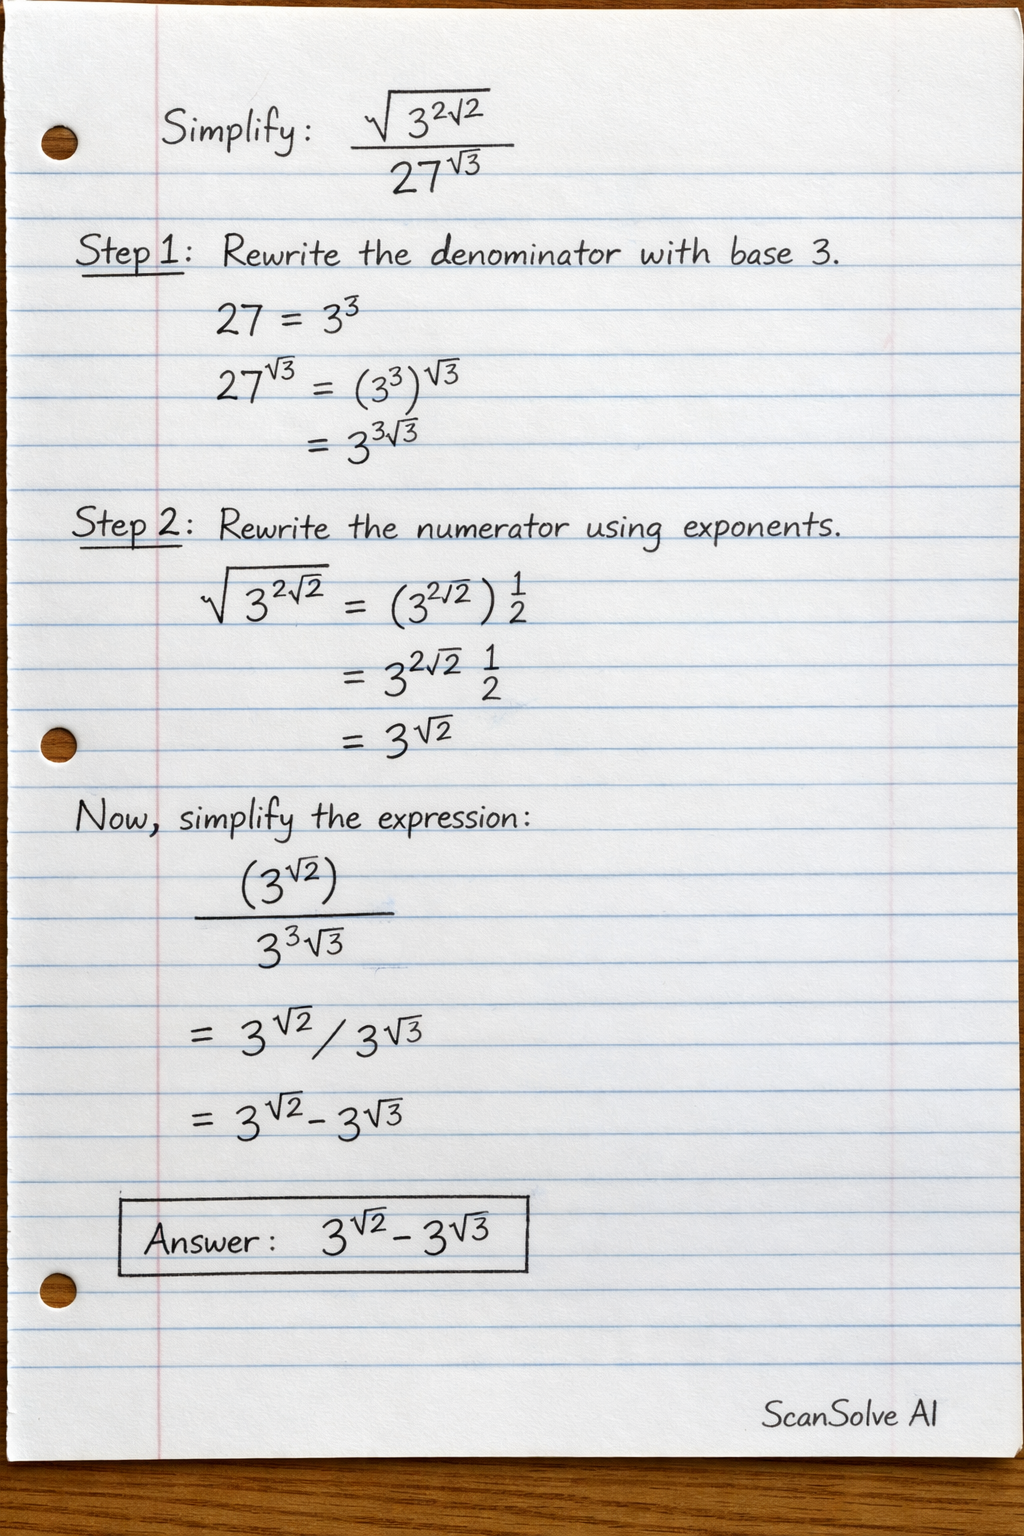 Simplify: √(3^(2√2)) / 27^(√3)
Step 1: Rewrite the denominator with base 3.
27 = 3^3
27^(√3) = (3^3)^(√3)
= 3^(3√3)
Step 2: Rewrite the numerator using exponents.
√(3^(2√2)) = (3^(2√2)) 1/2
= 3^(2√2) 1/2
= 3^(√2)
Now, simplify the expression:
(3^(√2))
3^(3√3)
= 3^(√2) / 3^(√3)
= 3^(√2) - 3^(√3)
Answer: 3^(√2) - 3^(√3)
ScanSolve AI